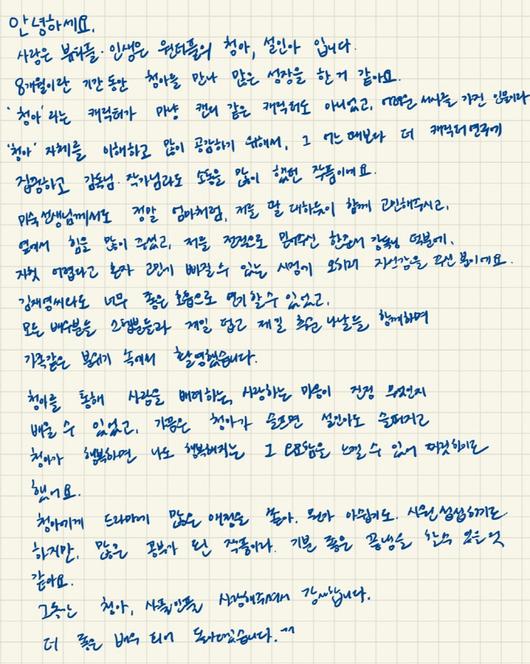 안녕하세요.
사랑은 뷰티풀·인생은 원더풀의 청아, 설인아 입니다.
8개월이란 기간동안 청아를 만나 많은 성장을 한 거 같아요.
'청아'라는 캐릭터가 마냥 캔디 같은 캐릭터도 아니었고, 어려운 서사를 가진 인물이라
'청아' 자체를 이해하고 많이 공감하기 위해서, 그 어느때보다 더 캐릭터연구에
집중하고 감독님·작가님과도 소통을 많이 했던 작품이에요.
미숙선생님께서도 정말 엄마처럼, 저를 딸 대하듯이 함께 고민해주시고,
옆에서 힘을 많이 주셨고, 저를 전적으로 믿어주신 한준서 감독님 덕분에,
자칫 어렵다고 혼자 고민에 빠질 수 있는 시점에 오히려 자신감을 주신 분이에요.
김재영씨와도 너무 좋은 호흡으로 연기할 수 있었고,
모든 배우분들 스탭분들과 제일 덥고 제일 추운 나날들 함께하며
가족같은 분위기 속에서 촬영했습니다.
청아를 통해 사람을 배려하는, 사랑하는 마음이 진정 무엇인지
배울 수 있었고, 가끔은 청아가 슬프면 설인아도 슬퍼지고
청아가 행복하면 나도 행복해지는 그 오묘함을 느낄 수 있어 따뜻하기도
했어요.
청아에게 드라마에 많은 애정을 쏟아, 뭔가 아쉽기도. 시원섭섭하기도
하지만, 많은 공부가 된 작품이라 기분 좋은 끝냄을 할 수 있을 것
같아요.
그동안 청아, 사풀인풀 사랑해주셔서 감사합니다.
더 좋은 배우 되어 돌아오겠습니다.^^